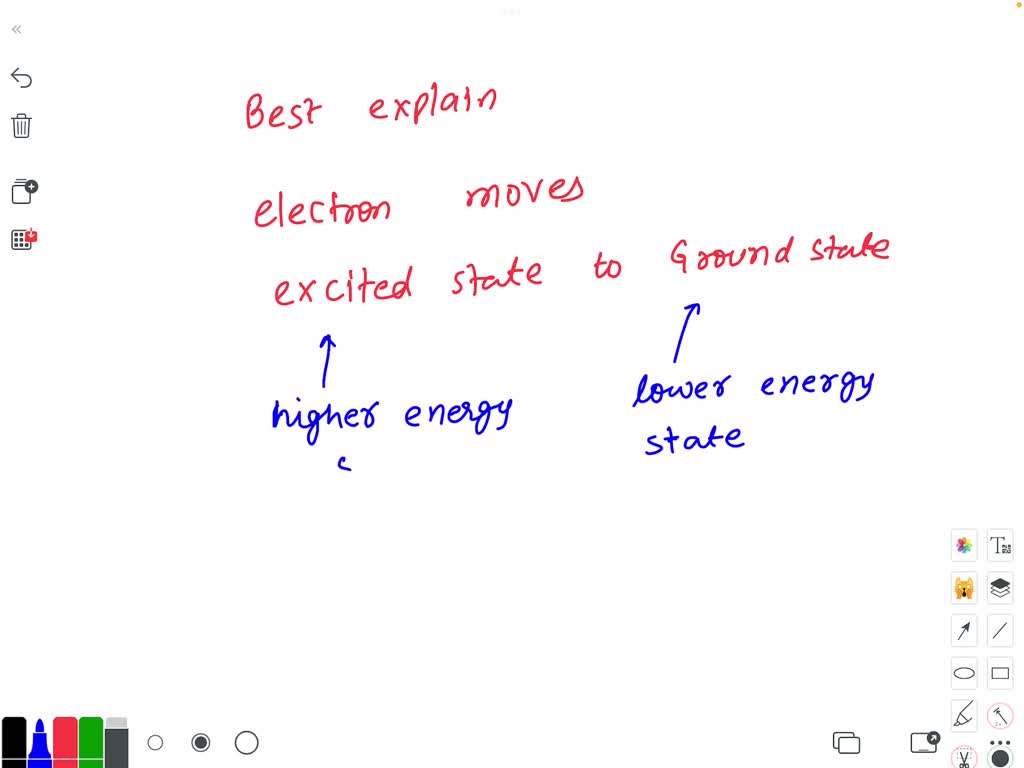 Best explain
electron moves
excited state to Ground state
higher energy
lower energy
state